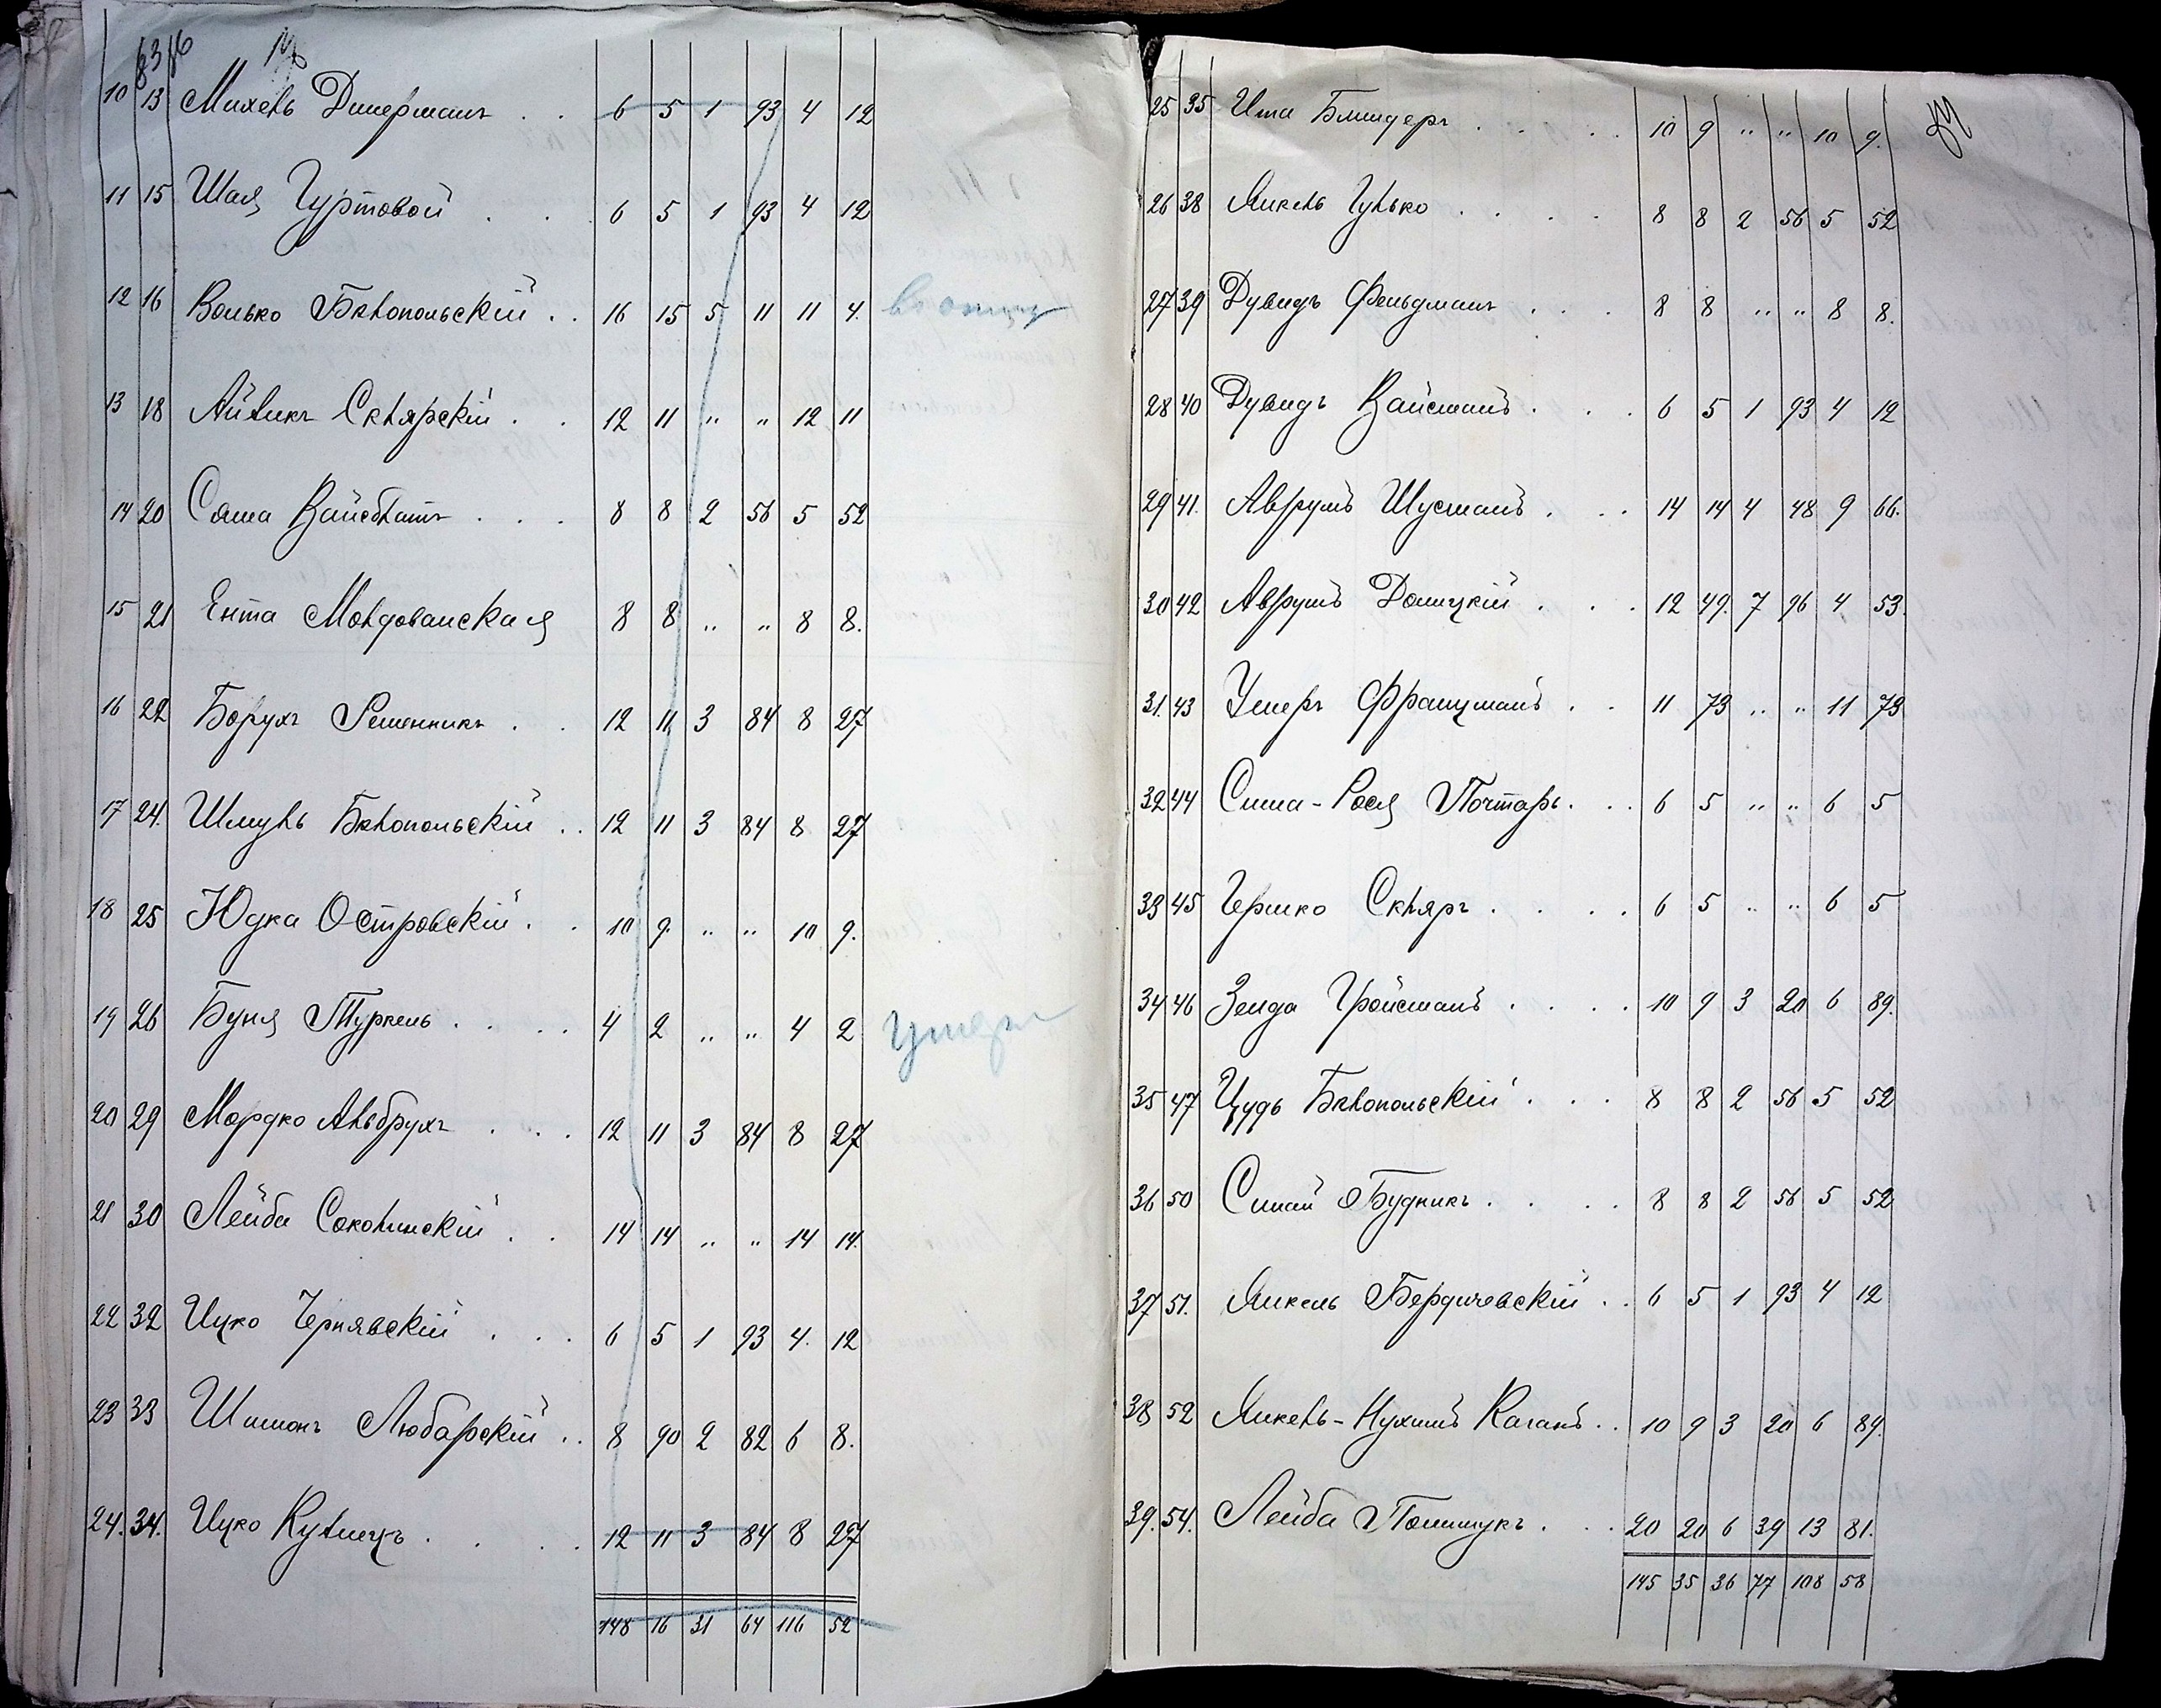 10 13 Михель Динерманъ . . 6 5 1 93 4 12
11 15 Шая Гуртовой . . . 6 5 1 93 4 12
12 16 Волько Бялопольскій . . 16 15 5 11 11 4.
13 18 Айзикъ Склярскій . . 12 11 " " 12 11
14 20 Сома Вайсблатъ . . . 8 8 2 56 5 52
15 21 Ента Молдованская 8 8 " " 8 8.
16 22 Борухъ Ременникъ . . 12 11 3 84 8 27
17 24. Шмуль Бялопольскій . . 12 11 3 84 8 27
18 25 Юдка Островскій . . 10 9 " " 10 9.
19 26 Буня Туркель . . . . 4 2 " " 4 2 Умерл
20 29 Мордко Альбрухъ . . . 12 11 3 84 8 27
21 30 Лейба Соколинскій . . 14 14 " " 14 14.
22 32 Ицко Чернявскій . . . 6 5 1 93 4. 12
23 33 Шимонъ Любарскій . . 8 90 2 82 6 8.
24. 34. Ицко Кузнецъ . . . . 12 11 3 84 8 27
148 16 31 64 116 52
25 35 Ита Блиндеръ . . . . 10 9 " " 10 9.
26 38 Янкель Гулько . . . . 8 8 2 56 5 52
27 39 Дувидъ Фельдманъ . . . 8 8 " " 8 8.
28 40 Дувидъ Вайсманъ . . . 6 5 1 93 4 12
29 41. Аврумъ Шусманъ . . . 14 14 4 48 9 66.
30 42 Аврумъ Долицкій . . . 12 49. 7 96 4 53.
31. 43 Ушеръ Францманъ . . 11 73 " " 11 73
32 44 Сима-Рося Почтарь . . . 6 5 " " 6 5
33 45 Гершко Скляръ . . . . 6 5 " " 6 5
34 46 Зейда Гройсманъ . . . . 10 9 3 20 6 89.
35 47 Цудь Бялопольскій . . . 8 8 2 56 5 52
36 50 Синай Будникъ . . . . 8 8 2 56 5 52
37 51. Янкель Бердичевскій . . 6 5 1 93 4 12
38 52 Янкель-Нухимъ Каганъ . . 10 9 3 20 6 89.
39. 54. Лейба Полищукъ . . . 20 20 6 39 13 81.
145 35 36 77 108 58